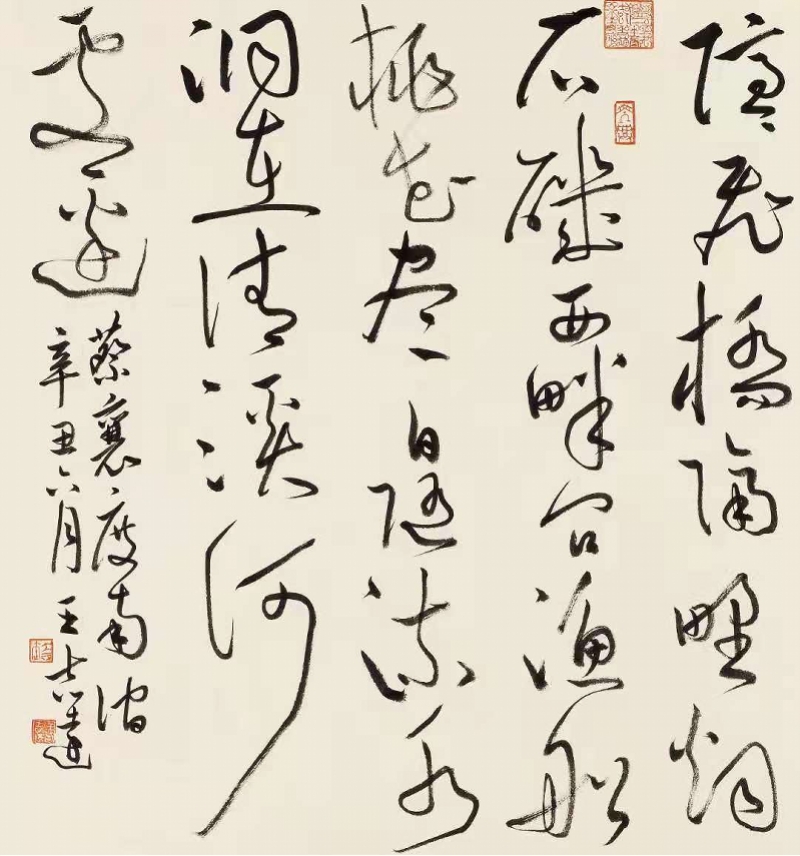 隱隱飛橋隔野烟
石磯西畔問漁船
桃花盡日隨流水
洞在清溪何
處邊
蔡襄度南澗
辛丑六月王